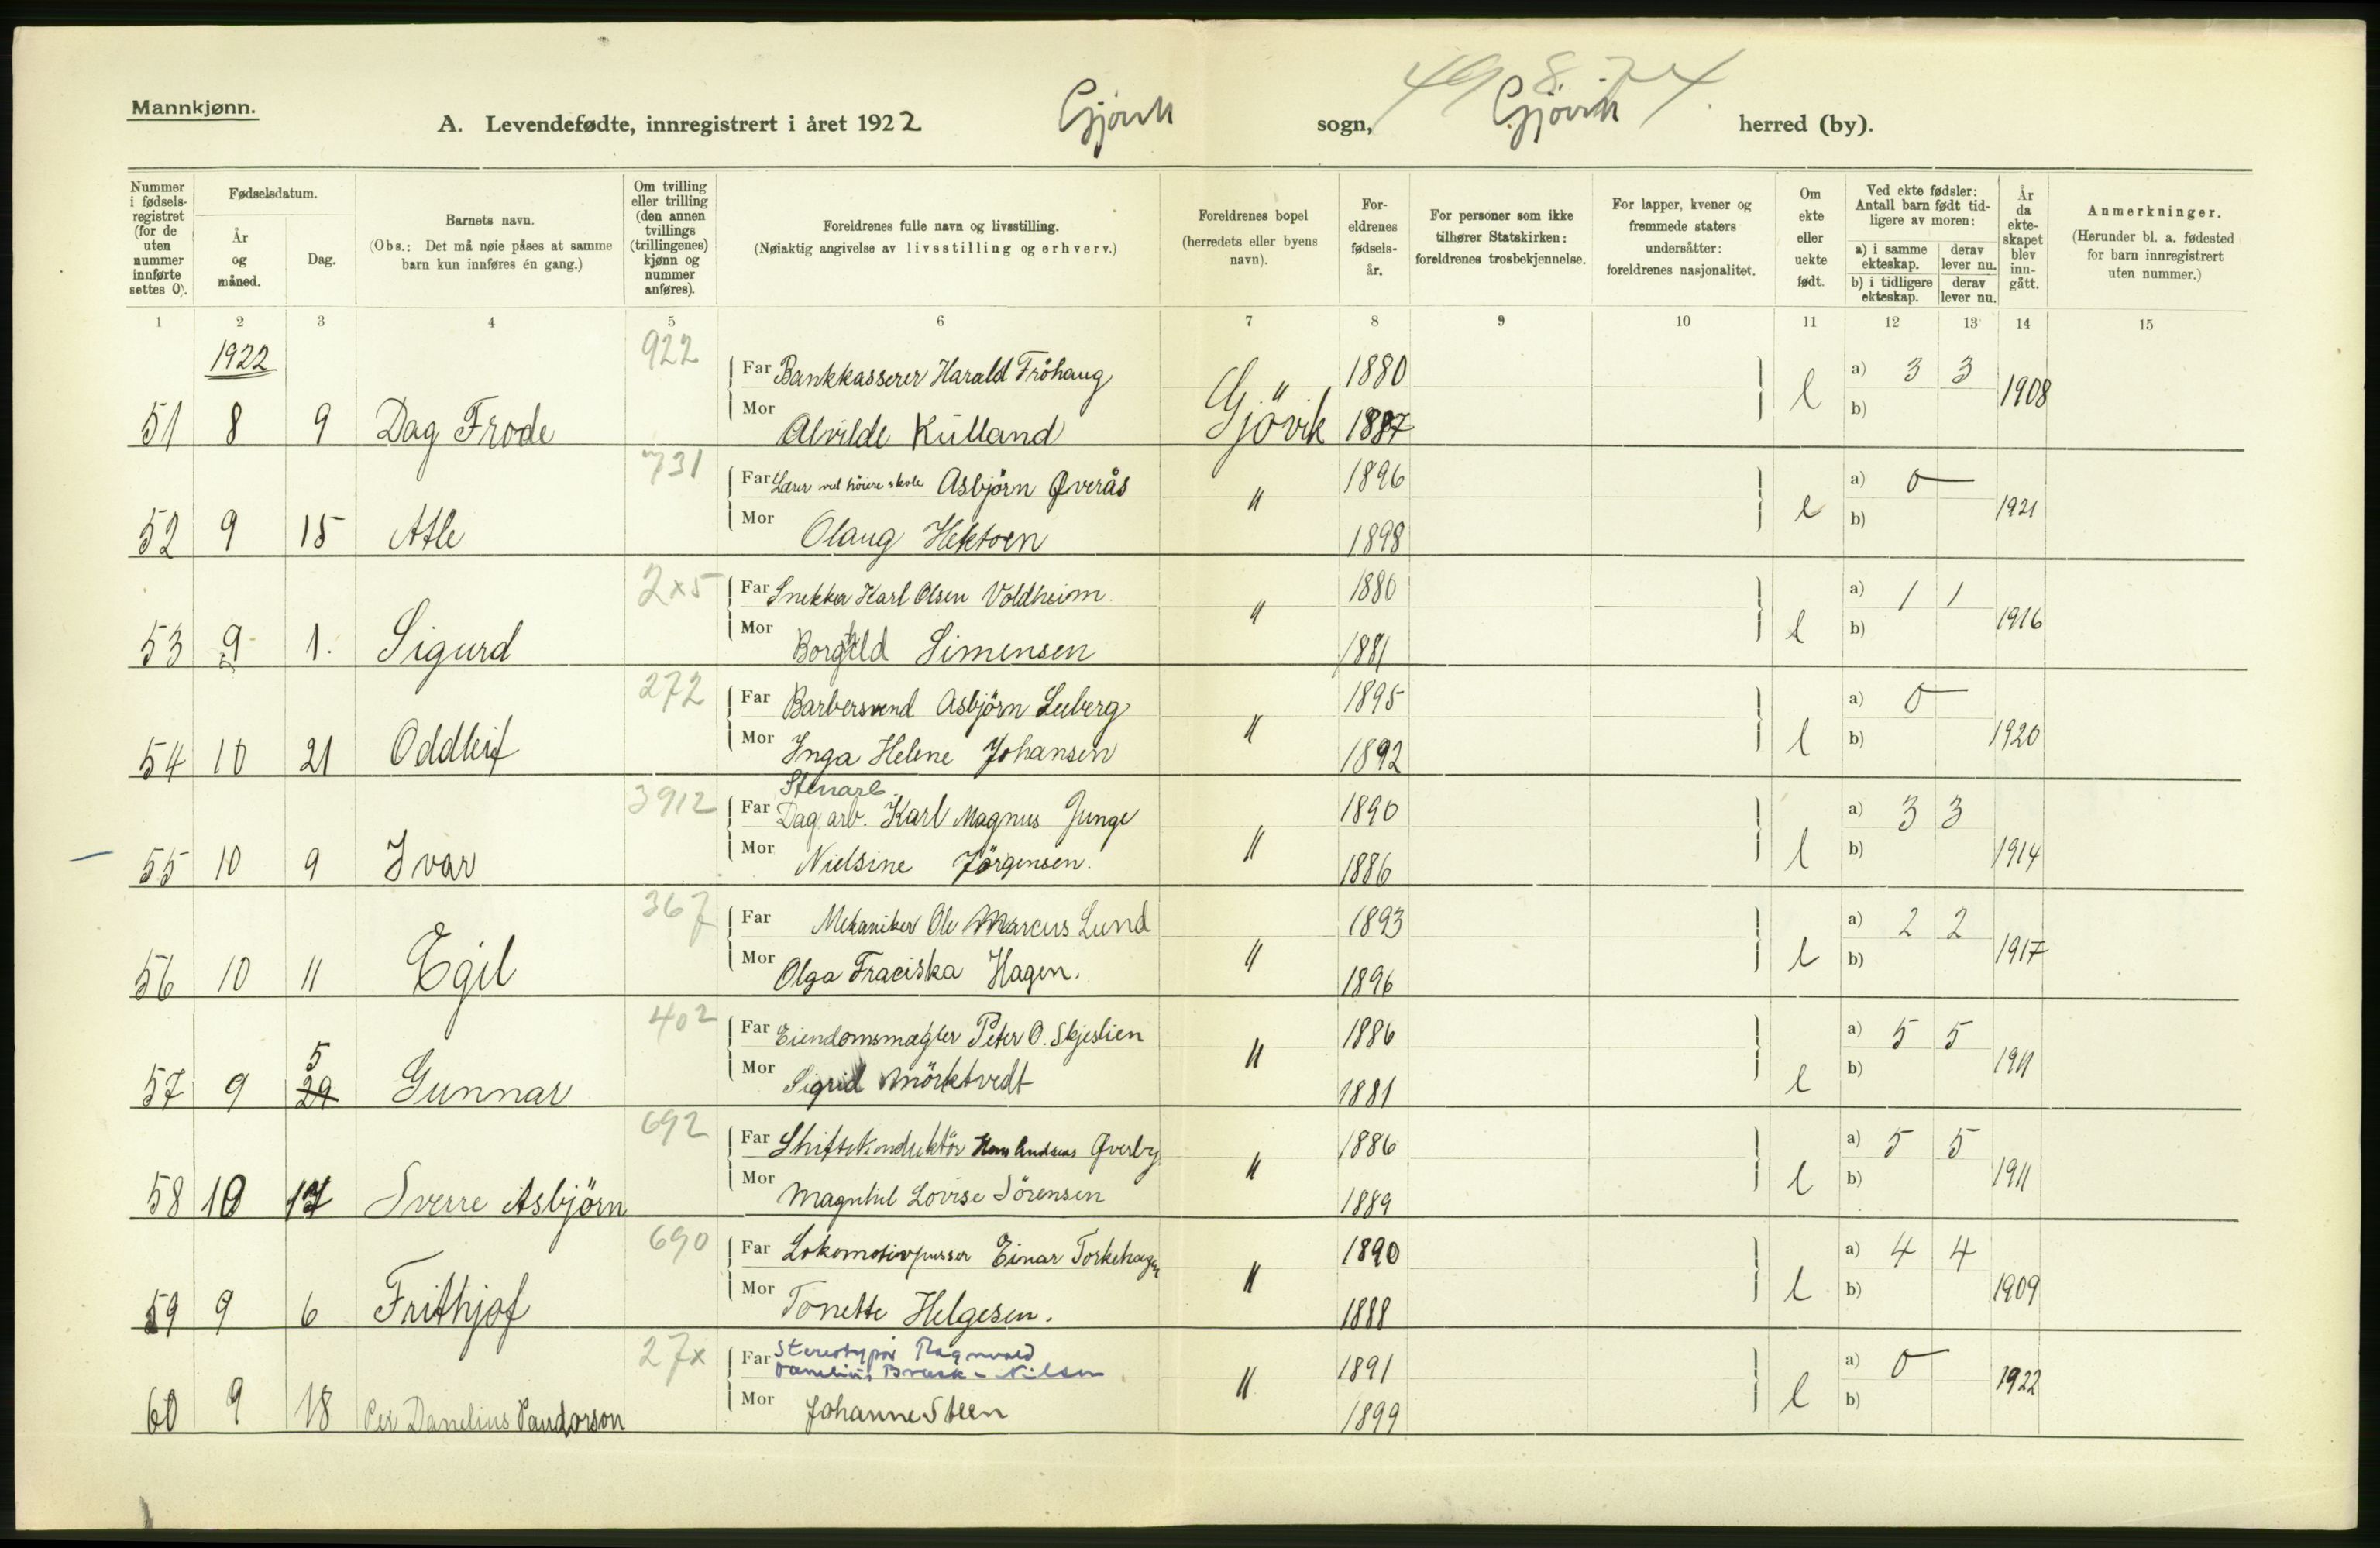 49 8. 74.
Mannkjønn.
A. Levendefødte, innregistrert i året 1922 Gjøvik sogn, Gjøvik herred (by).
Nummer i fødsels-registret (for de uten nummer innførte settes 0).
Fødselsdatum.
År og måned.
Dag.
Barnets navn.
(Obs.: Det må nøie påses at samme barn kun innføres én gang.)
Om tvilling eller trilling (den annen tvillings (trillingenes) kjønn og nummer anføres).
Foreldrenes fulle navn og livsstilling.
(Nøiaktig angivelse av livsstilling og erhverv.)
Foreldrenes bopel (herredets eller byens navn).
For-eldrenes fødsels-år.
For personer som ikke tilhører Statskirken: foreldrenes trosbekjennelse.
For lapper, kvener og fremmede staters undersåtter: foreldrenes nasjonalitet.
Om ekte eller uekte født.
Ved ekte fødsler: Antall barn født tid-ligere av moren:
a) i samme ekteskap. derav lever nu.
b) i tidligere ekteskap. derav lever nu.
År da ekte-skapet blev inn-gått.
Anmerkninger.
(Herunder bl. a. fødested for barn innregistrert uten nummer.)
1 2 3 4 5 6 7 8 9 10 11 12 13 14 15
1922 922
Far Bankkasserer Harald Fröhaug " 1880 a) 3 3
51 8 9 Dag Frode Mor Alvilde Kulland Gjövik 1887 l b) 1908
731
Far Lærer ved höiere skole Asbjörn Øverås 1896 a) 0
52 9 15 Atle Mor Olaug Hektoen " 1898 e b) 1921
2x5
Far Snekker Karl Olsen Voldheim. 1880 a) 1 1
53 9 1. Sigurd Mor Borghild Simensen " 1881 l b) 1916
272
Far Barbersvend Asbjörn Leeberg 1895 a) 0
54 10 21 Oddleif Mor Inga Helene Johansen " 1892 l b) 1920
3912 Stenarb.
Far Dag arb. Karl Magnus Junge 1890 a) 3 3
55 10 9 Ivar Mor Nielsine Jörgensen. " 1886 l b) 1914
367
Far Mekaniker Ole Marcus Lund 1893 a) 2 2
56 10 11 Egil Mor Olga Fraciska Hagen. " 1896 l b) 1917
402
Far Eiendomsmægler Peter O. Skjeslien 1886 a) 5 5
57 9 29 5 Gunnar Mor Sigrid Mörktvedt " 1881 l b) 1911
692
Far Skiftekonduktör Hans Andreas Øverby 1886 a) 5 5
58 10 17 Sverre Asbjörn Mor Magnhil Lovise Sörensen " 1889 l b) 1911
690
Far Lokomotivpusser Einar Torkehagen 1890 a) 4 4
59 9 6 Frithjof Mor Tonette Helgesen. " 1888 l b) 1909
27x
Far Stereotypör Ragnvald
Danelius Brask-Nilsen 1891 a) 0
60 9 18 Per Danelius Mor Johanne Steen " 1899 l b) 1922